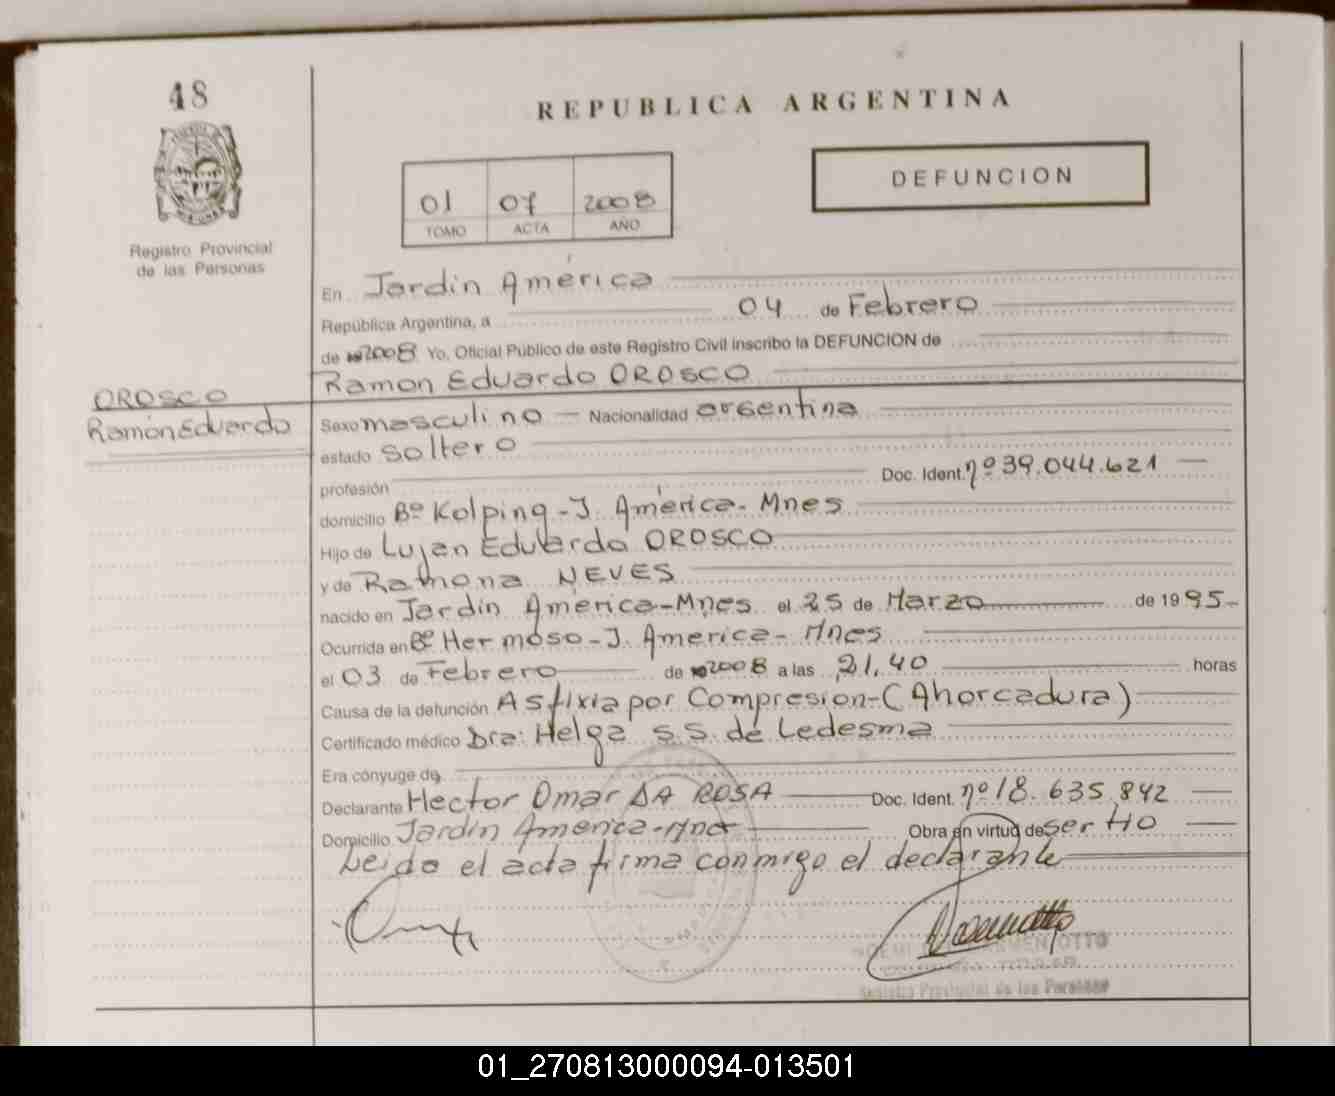 48
REPUBLICA ARGENTINA
DEFUNCION
01 07 2008
TOMO ACTA AÑO
Registro Provincial
de las Personas
En Jardin América
República Argentina, a 04 de Febrero
de 2008 Yo, Oficial Público de este Registro Civil inscribo la DEFUNCION de
Ramon Eduardo OROSCO
OROSCO
Ramón Eduardo
Sexo masculino — Nacionalidad argentina
estado soltero
profesión Doc. Ident. nº 39.044.621 —
domicilio Bº Kolping - J. América - Mnes
Hijo de Lujan Eduardo OROSCO
y de Ramona NEVES
nacido en Jardin América - Mnes el 25 de Marzo de 1995 -
Ocurrida en Bº Hermoso - J. America - Mnes
el 03 de Febrero de 2008 a las 21,40 horas
Causa de la defunción Asfixia por Compresion - (Ahorcadura)
Certificado médico Dra: Helga S.S. de Ledesma
Era cónyuge de
Declarante Hector Omar DA ROSA Doc. Ident. nº 18.635,842 —
Domicilio Jardin America - Obra en virtud de ser tio —
Leida el acta firma conmigo el declarante
OTTO
Registro Provincial de las Personas
01_270813000094-013501